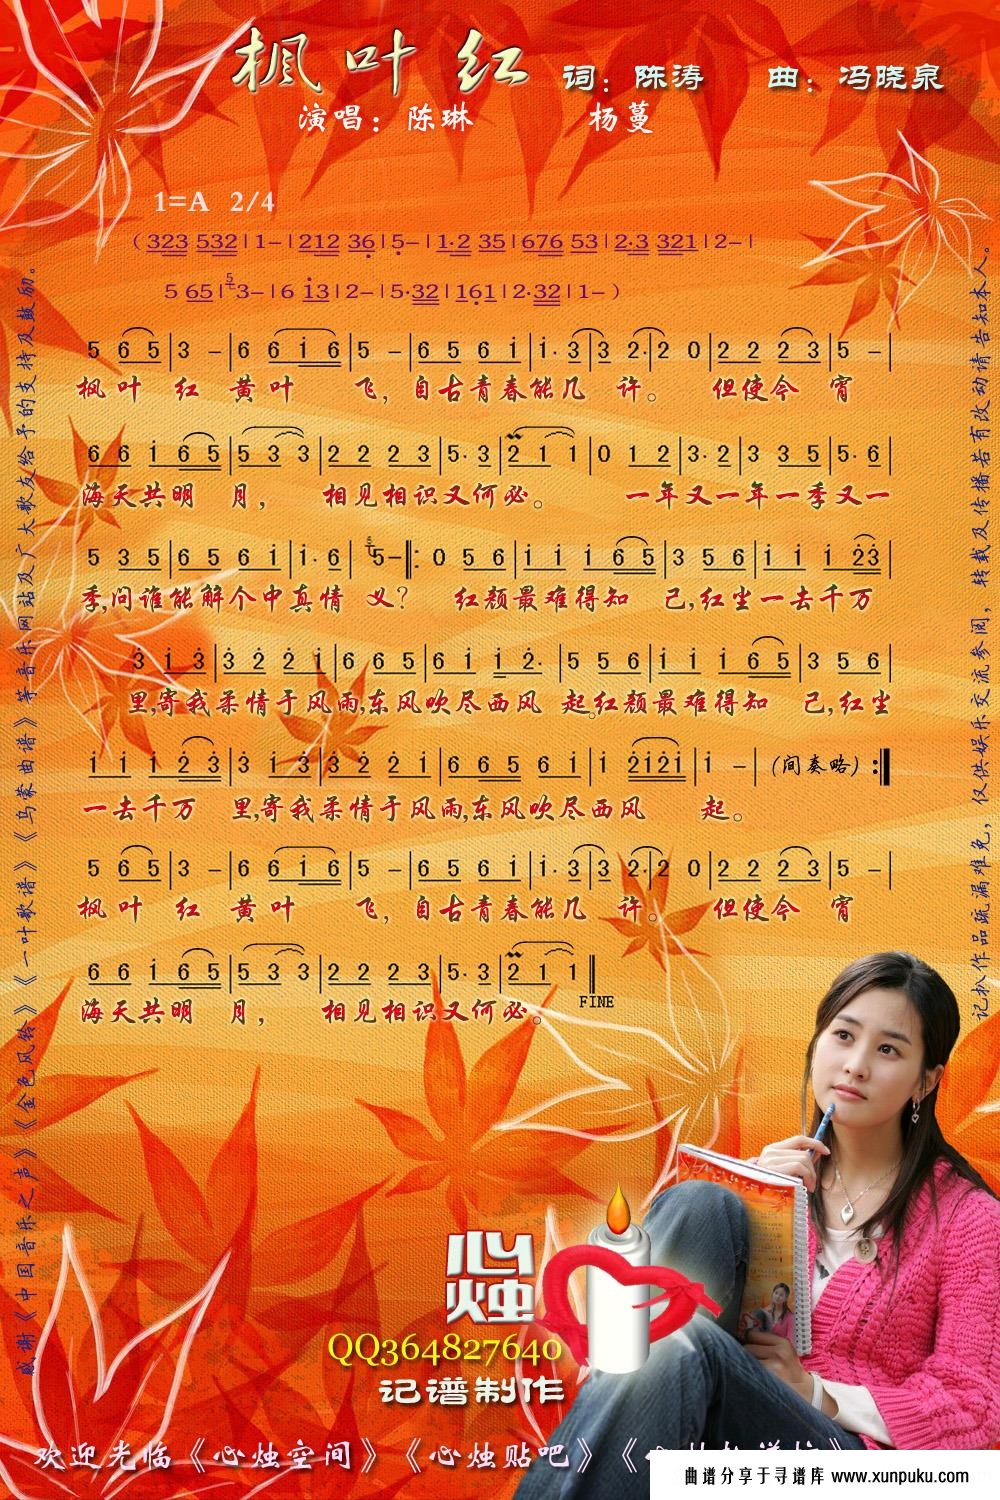 枫叶红 词：陈涛 曲：冯晓泉
演唱：陈琳 杨蔓
1=A 2/4
（323 532 | 1– | 212 36 | 5– | 1·2 35 | 676 53 | 2·3 321 | 2– |
5 65 | 5 3– | 6 i3 | 2– | 5·32 | 161 | 2·32 | 1– ）
5 6 5 | 3 – | 6 6 i 6 | 5 – | 6 5 6 i | i· 3 | 3 2· | 2 0 | 2 2 2 3 | 5 – |
枫叶 红 黄叶 飞，自古青春能几 许。 但使今 宵
6 6 i 6 5 | 5 3 3 | 2 2 2 3 | 5· 3 | 2 1 1 | 0 1 2 | 3· 2 | 3 3 5 | 5· 6 |
海天共明 月， 相见相识又何必。 一年又一年一季又一
5 3 5 | 6 5 6 i | i· 6 | 5 5– ‖: 0 5 6 | i i i 6 5 | 3 5 6 | i i i 2 3 |
季,问谁能解个中真情 义？ 红颜最难得知 己,红尘一去千万
3 i 3 | 3 2 2 i | 6 6 5 | 6 i i 2· | 5 5 6 | i i i 6 5 | 3 5 6 |
里,寄我柔情于风雨,东风吹尽西风 起。红颜最难得知 己,红尘
i i i 2 3 | 3 i 3 | 3 2 2 i | 6 6 5 6 i | i 2 i 2 i | i – | (间奏略) :‖
一去千万 里,寄我柔情于风雨,东风吹尽西风 起。
5 6 5 | 3 – | 6 6 i 6 | 5 – | 6 5 6 i | i· 3 | 3 2· | 2 0 | 2 2 2 3 | 5 – |
枫叶 红 黄叶 飞，自古青春能几 许。 但使今 宵
6 6 i 6 5 | 5 3 3 | 2 2 2 3 | 5· 3 | 2 1 1 ‖
FINE
海天共明 月， 相见相识又何必。
感谢《中国音乐之声》《金色风铃》《一叶歌谱》《乌蒙曲谱》等音乐网站及广大歌友给予的支持及鼓励。
记扒作品疏漏难免，仅供娱乐交流参阅，转载及传播若有改动请告知本人。
心烛
QQ364827640
记谱制作
欢迎光临《心烛空间》《心烛贴吧》《
曲谱分享于寻谱库 www.xunpuku.com